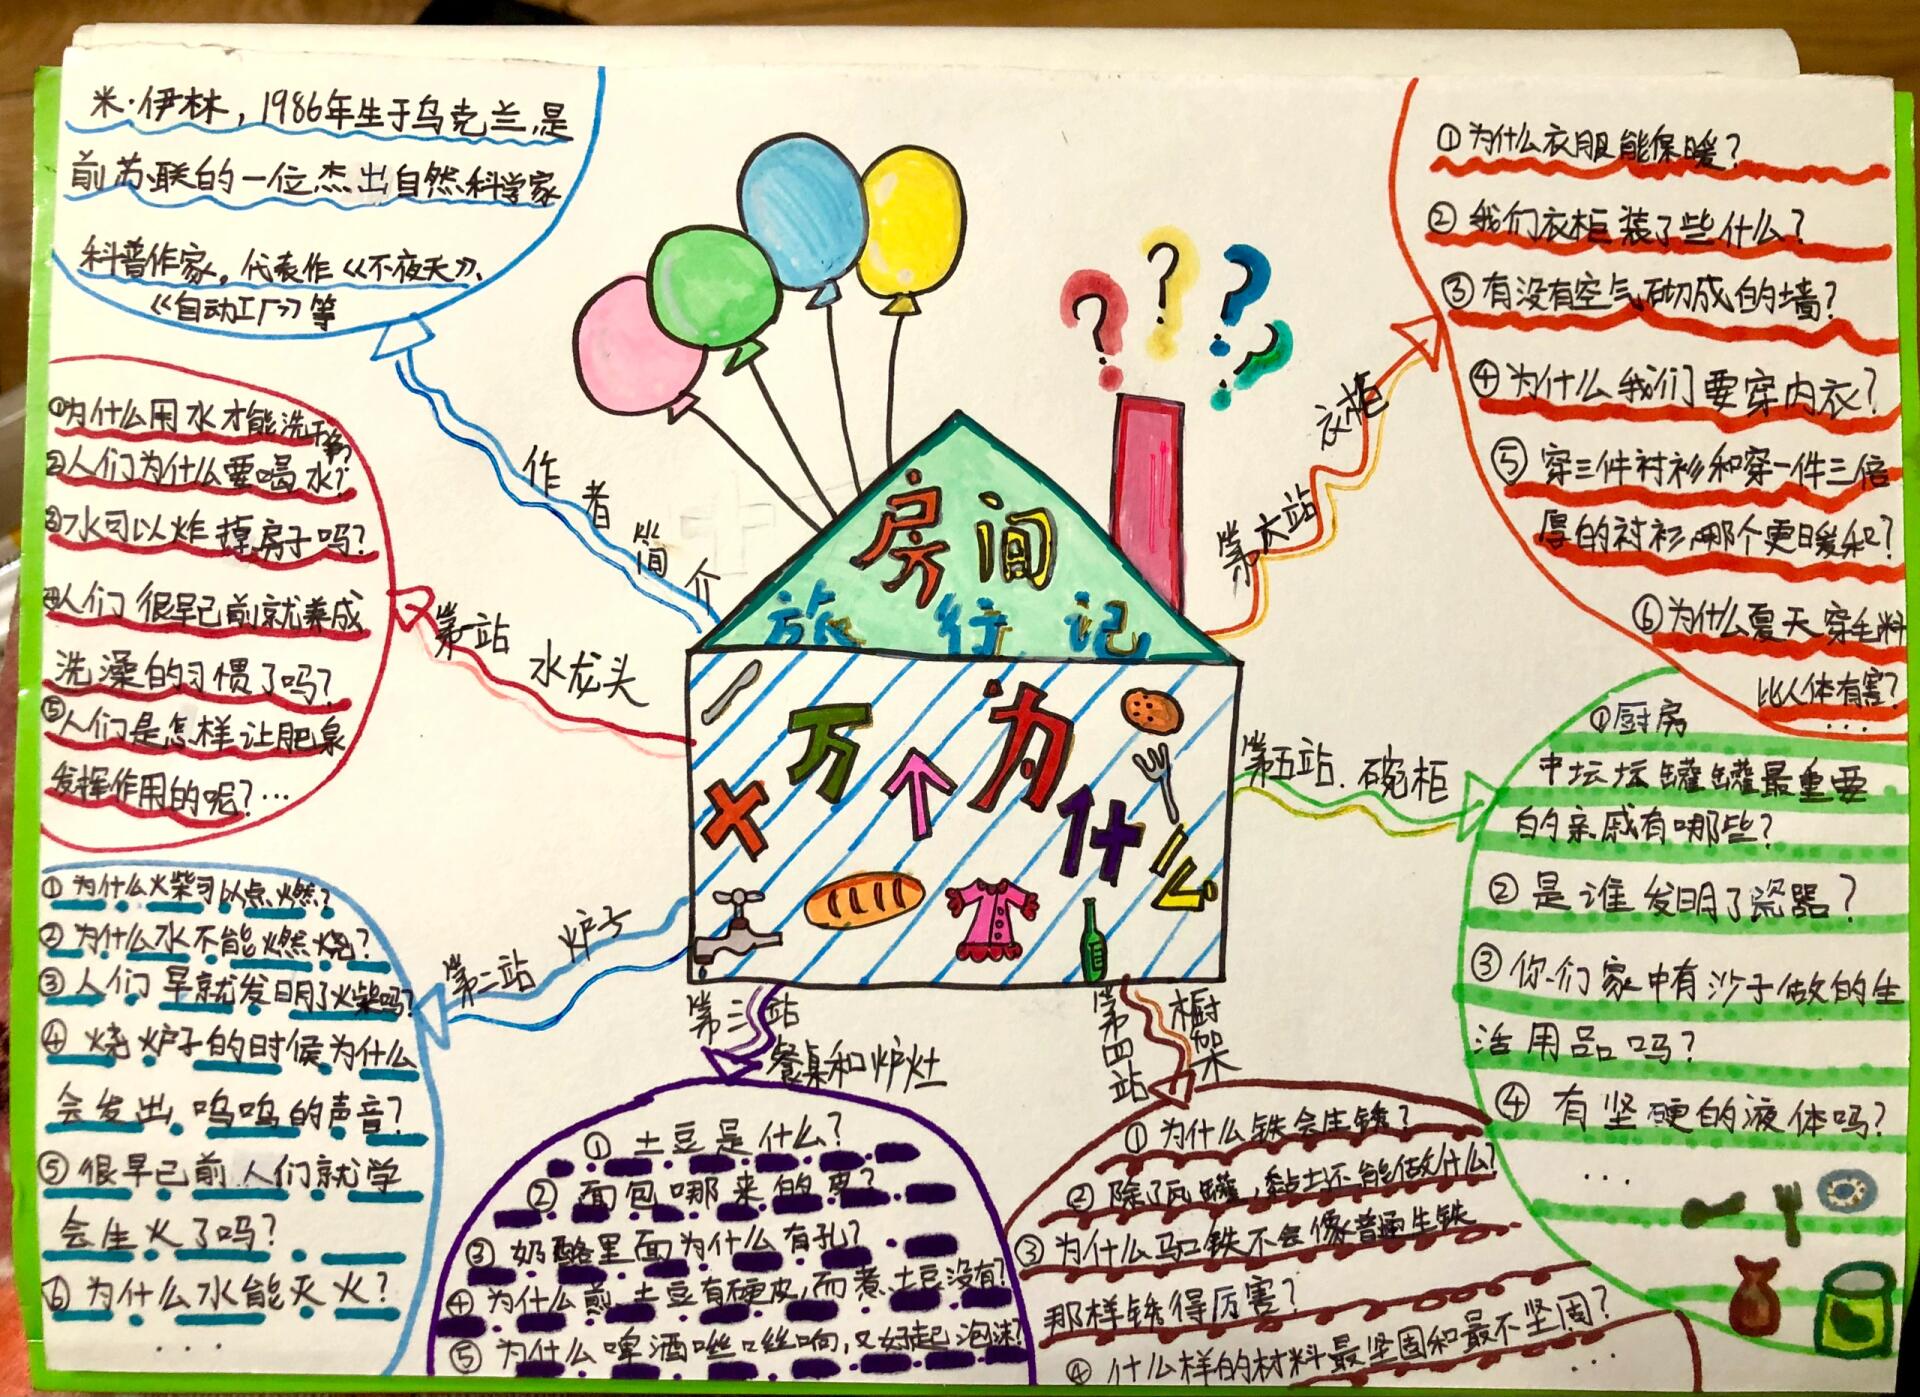 米·伊林，1986年生于乌克兰，是
前苏联的一位杰出自然科学家
科普作家，代表作《不夜天》、
《自动工厂》等
作者简介
房间
旅行记
十万个为什么
第一站 水龙头
①为什么用水才能洗干净？
②人们为什么要喝水？
③水可以炸掉房子吗？
④人们很早已前就养成
洗澡的习惯了吗？
⑤人们是怎样让肥皂
发挥作用的呢？…
第二站 炉子
①为什么火柴可以点燃？
②为什么水不能燃烧？
③人们早就发明了火柴吗？
④烧炉子的时候为什么
会发出呜呜的声音？
⑤很早已前人们就学
会生火了吗？
⑥为什么水能灭火？
...
第三站
餐桌和炉灶
①土豆是什么？
②面包哪来的
③奶酪里面为什么有孔？
④为什么煎土豆有硬皮，而煮土豆没有？
⑤为什么啤酒咝咝响，又好起泡沫？
第四站
橱架
①为什么铁会生锈？
②除了瓦罐，黏土还能做什么？
③为什么马口铁不会像普通生铁
那样锈得厉害？
④什么样的材料最坚固和最不坚固？
...
第五站 碗柜
①厨房
中坛坛罐罐最重要
的亲戚有哪些？
②是谁发明了瓷器？
③你们家中有沙子做的生
活用品吗？
④有坚硬的液体吗？
...
第六站 衣柜
①为什么衣服能保暖？
②我们衣柜装了些什么？
③有没有空气砌成的墙？
④为什么我们要穿内衣？
⑤穿三件衬衫和穿一件三倍
厚的衬衫哪个更暖和？
⑥为什么夏天穿毛料
比人体有害？
...